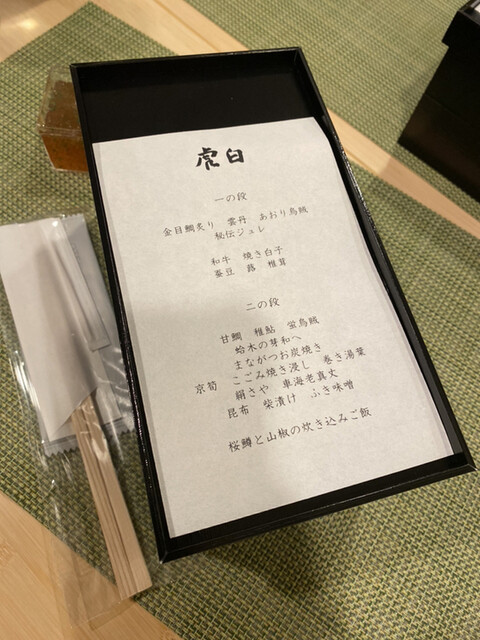 虎白
一の段
金目鯛炙り 雲丹 あおり烏賊
秘伝ジュレ
和牛 焼き白子
蚕豆 蕗 椎茸
二の段
甘鯛 稚鮎 蛍烏賊
蛤木の芽和へ
まながつお炭焼き
京筍 こごみ焼き浸し 巻き湯葉
絹さや 車海老真丈
昆布 柴漬け ふき味噌
桜鱒と山椒の炊き込みご飯